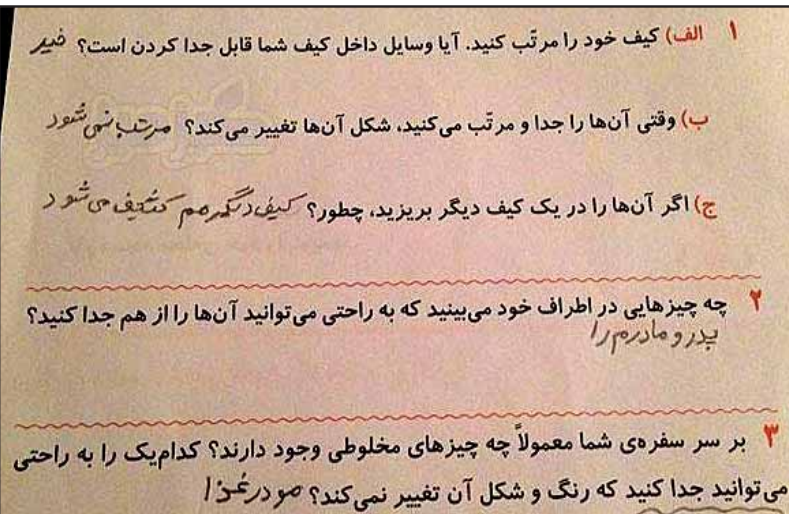 ۱ الف) کیف خود را مرتّب کنید. آیا وسایل داخل کیف شما قابل جدا کردن است؟ خیر
ب) وقتی آن‌ها را جدا و مرتّب می‌کنید، شکل آن‌ها تغییر می‌کند؟ مرتب نمی شود
ج) اگر آن‌ها را در یک کیف دیگر بریزید، چطور؟ کیف دیگر هم کثیف می شود
۲ چه چیزهایی در اطراف خود می‌بینید که به راحتی می‌توانید آن‌ها را از هم جدا کنید؟
پدر و مادرم را
۳ بر سر سفره‌ی شما معمولاً چه چیزهای مخلوطی وجود دارند؟ کدام‌یک را به راحتی
می‌توانید جدا کنید که رنگ و شکل آن تغییر نمی‌کند؟ مو در غذا